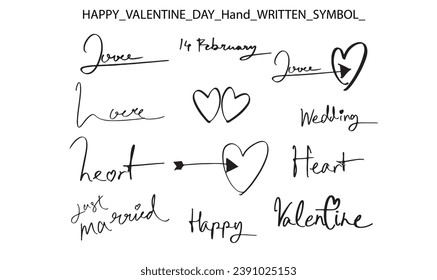 HAPPY_VALENTINE_DAY_Hand_WRITTEN_SYMBOL_
Love 14 February Love
Love Wedding
heart Heart
just married Happy Valentine
shutterstock.com · 2391025153